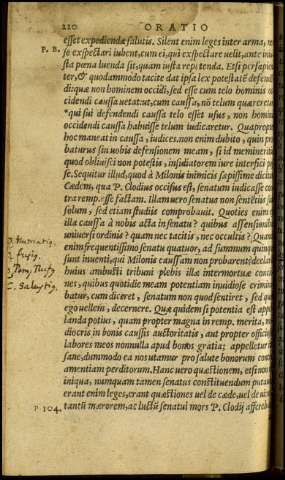 210 ORATIO
esset expediendæ salutis. Silent enim leges inter arma, nec
P. B. se exspectari iubent, cum ei, qui exspectare velit, ante iniu-
sta pœna luenda sit, quam iusta repetenda. Etsi persapien-
ter, & quodammodo tacite dat ipsa lex potestatē defen-
di: quæ non hominem occidi, sed esse cum telo hominis oc-
cidendi caussa vetat: ut, cum caussa, nō telum quæreretur,
*qui sui defendendi caussa telo esset usus, non hominis
occidendi caussa habuisse telum iudicaretur. Quapropter
hoc maneat in caussa, iudices. non enim dubito, quin pro-
baturus sim vobis defensionem meam, si id memineritis,
quod oblivisci non potestis, insidiatorem iure interfici pos-
se. Sequitur illud, quod à Milonis inimicis sæpissime dicitur,
Cædem, qua P. Clodius occisus est, senatum iudicasse con-
tra remp. esse factam. Illam vero senatus non sentētiis suis
solum, sed etiam studiis comprobauit. Quoties enim est
illa caussa à nobis acta in senatu? quibus assensionibus
uniuersi ordinis? quam nec tacitis, nec occultis? Quando
enim frequentissimo senatu quatuor, ad summum quinque
sunt inuenti, qui Milonis caussam non probarent? declarant
huius ambusti tribuni plebis illa intermortuæ concio-
nes, quibus quotidie meam potentiam inuidiose crimina-
batur, cum diceret, senatum non quod sentiret, sed quod
ego uellem, decernere. Quæ quidem si potentia est appel-
landa potius, quam propter magna in remp. merita, me-
diocris in bonis caussis auctoritatis, aut propter officiosos
labores meos nonnulla apud bonos gratia; appelletur ita
sane, dummodo ea nos utamur pro salute bonorum contra
amentiam perditorum. Hanc uero quæstionem, etsi non est
iniqua, numquam tamen senatus constituendum putauit.
erant enim leges, erant quæstiones uel de cæde, uel de ui: nec
P 104. tantū mærorem, ac luctū senatui mors P. Clodij afferebat,